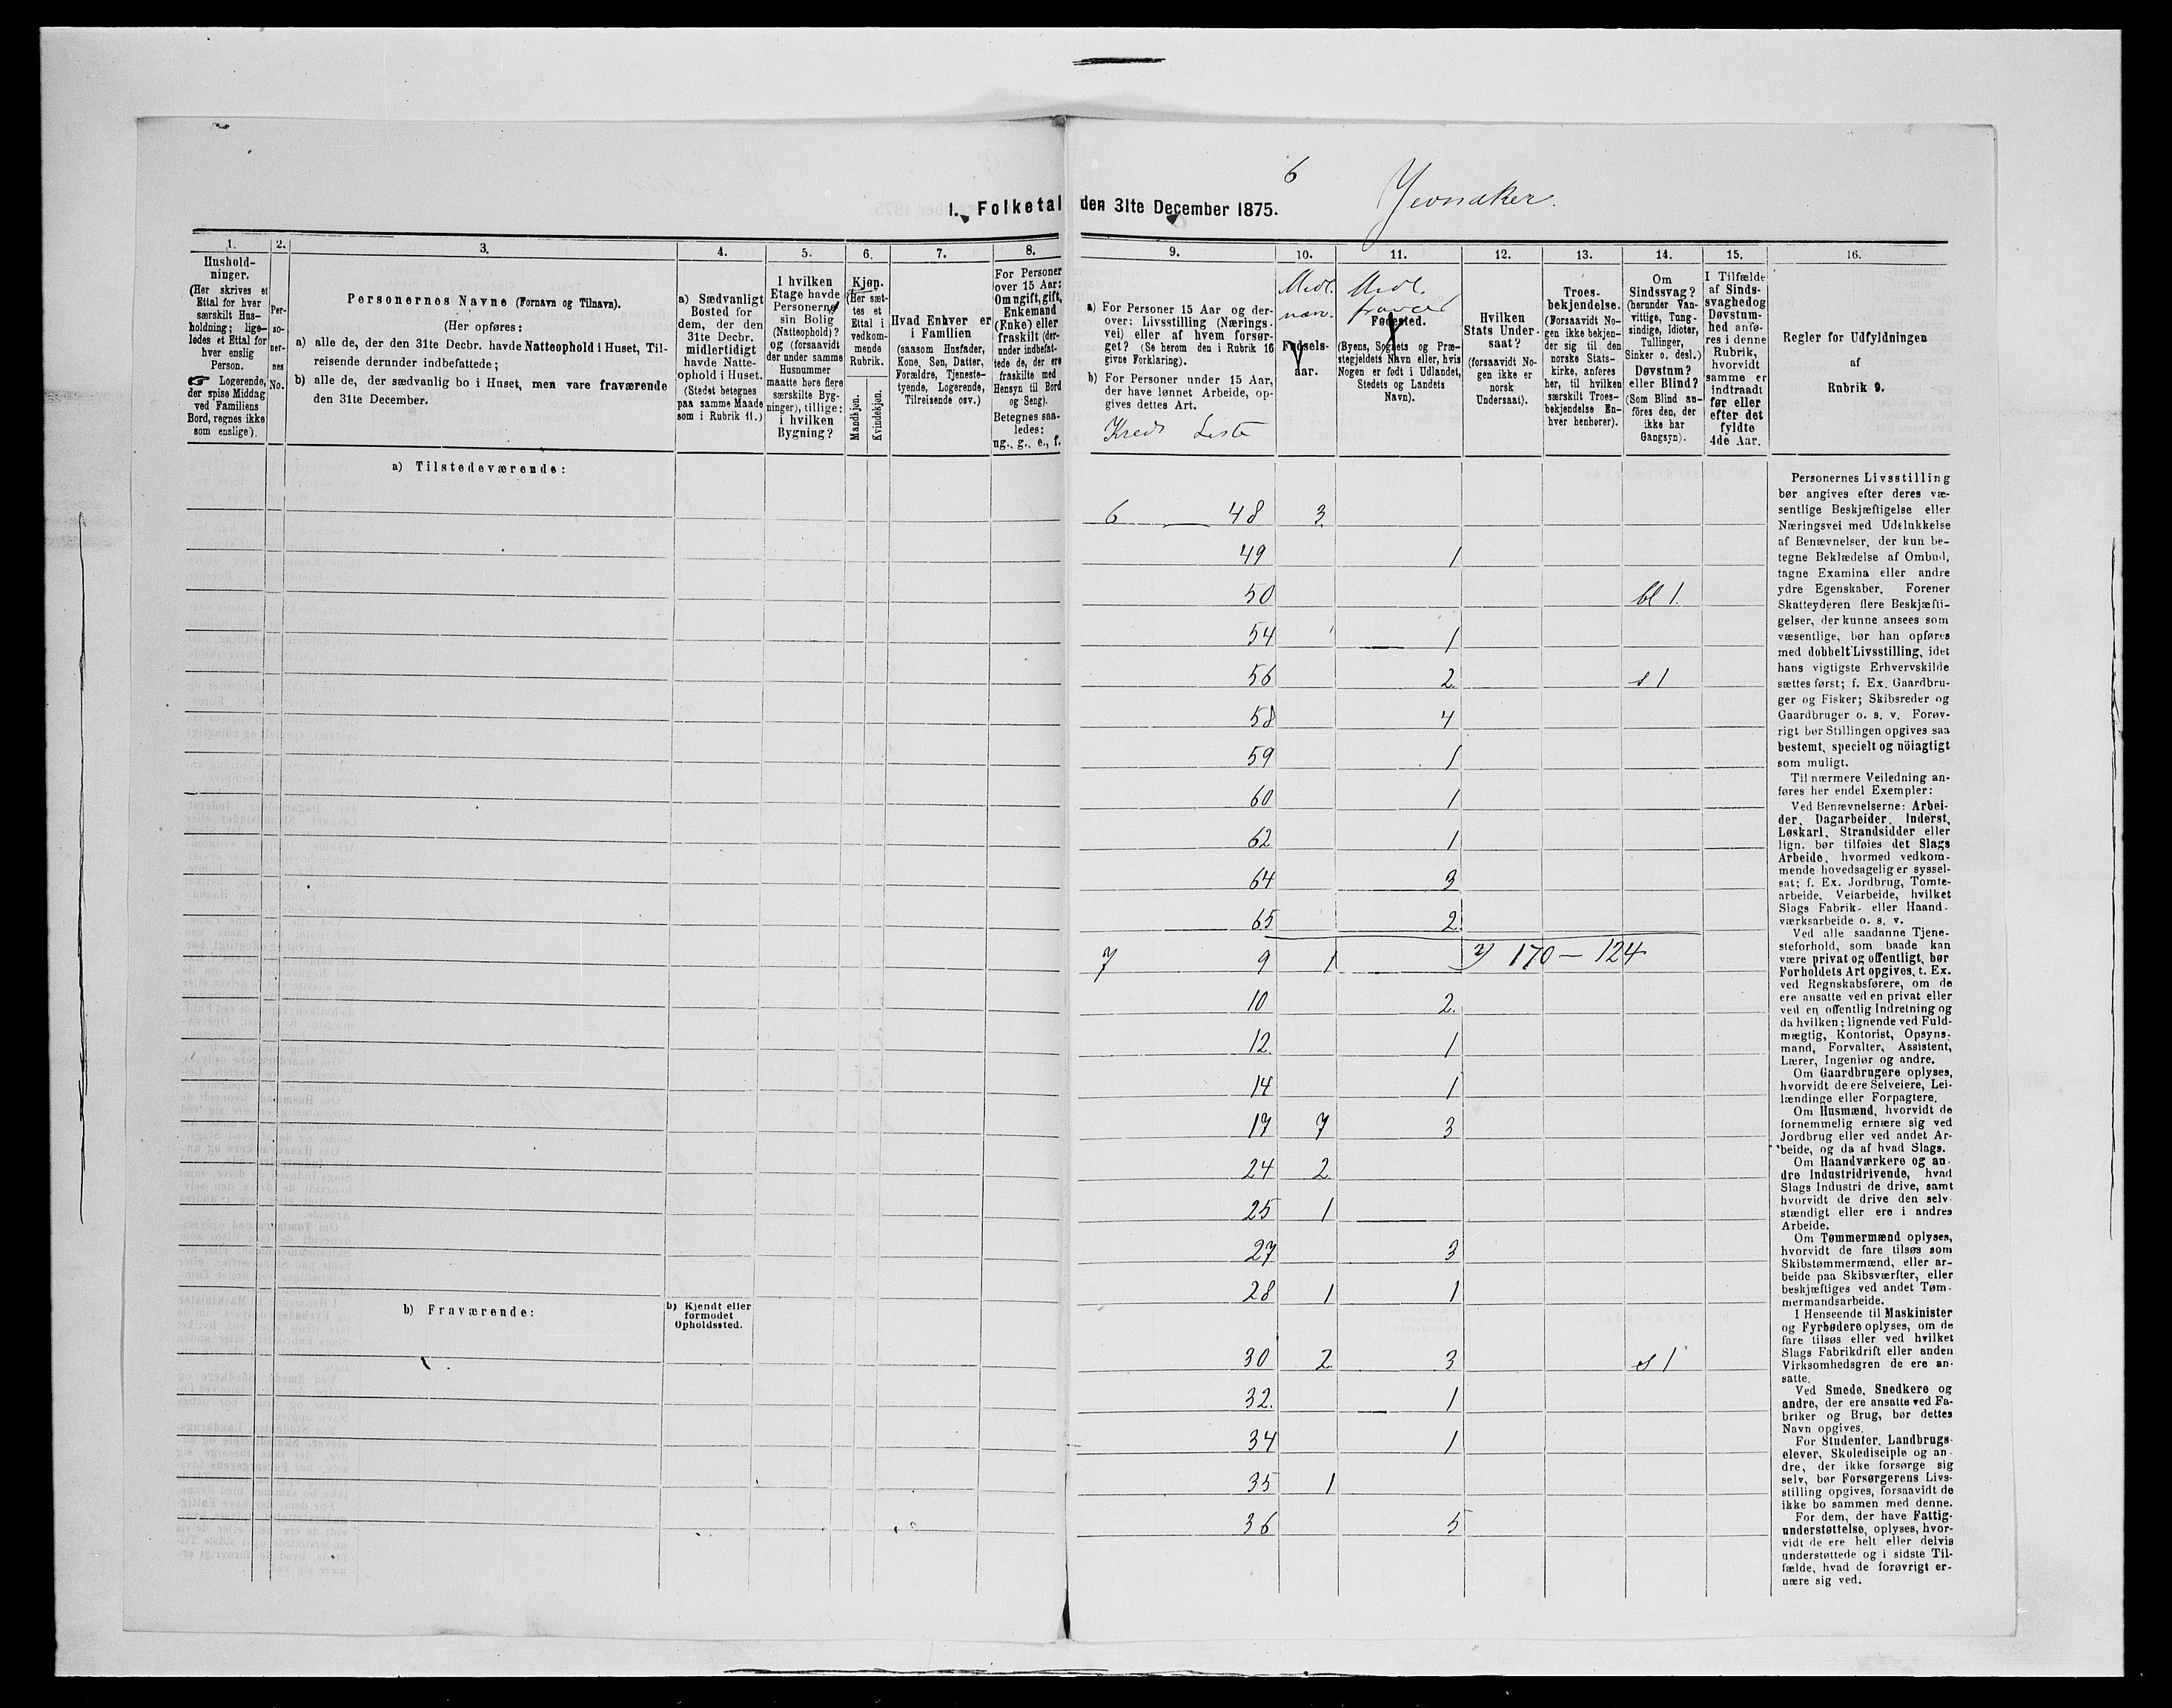 6
Jevnaker.
1. Folketal den 31te December 1875.
1.
Hushold-
ninger.
(Her skrives et
Ettal for hver
særskilt Hus-
holdning; lige-
ledes et Ettal for
hver enslig
Person.
☞ Logerende,
der spise Middag
ved Familiens
Bord, regnes ikke
som enslige).
2.
Per-
so-
ner-
nes
No.
3.
Personernes Navne (Fornavn og Tilnavn).
(Her opføres:
a) alle de, der den 31te Decbr. havde Natteophold i Huset, Til-
reisende derunder indbefattede;
b) alle de, der sædvanlig bo i Huset, men vare fraværende
den 31te December.
4.
a) Sædvanligt
Bosted for
dem, der den
31te Decbr.
midlertidigt
havde Natte-
ophold i Huset.
(Stedet betegnes
paa samme Maade
som i Rubrik 11.)
5.
I hvilken
Etage havde
Personerne
sin Bolig
(Natteophold)?
og (forsaavidt
der under samme
Husnummer
maatte høre flere
særskilte Byg-
ninger), tillige:
i hvilken
Bygning?
6.
Kjøn.
(Her sæt-
tes et
Ettal i
vedkom-
mende
Rubrik.
Mandkjøn.
Kvindekjøn.
7.
Hvad Enhver er
i Familien
(saasom Husfader,
Kone, Søn, Datter,
Forældre, Tjeneste-
tyende, Logerende,
Tilreisende osv.)
8.
For Personer
over 15 Aar:
Om ugift, gift,
Enkemand
(Enke) eller
fraskilt (der-
under indbefat-
tede de, der ere
fraskilte med
Hensyn til Bord
og Seng).
Betegnes saa-
ledes:
ug., g., e., f.
9.
a) For Personer 15 Aar og der-
over: Livsstilling (Nærings-
vei) eller af hvem forsør-
get? (Se herom den i Rubrik 16
givne Forklaring).
b) For Personer under 15 Aar,
der have lønnet Arbeide, op-
gives dettes Art.
Kreds Liste
10.
Midl.
nær.
Fødsels-
aar.
11.
Midl.
fravær
Fødested.
(Byens, Sognets og Præ-
stegjeldets Navn eller, hvis
Nogen er født i Udlandet,
Stedets og Landets
Navn).
12.
Hvilken
Stats Under-
saat?
(forsaavidt No-
gen ikke er
norsk
Undersaat).
13.
Troes-
bekjendelse.
(Forsaavidt No-
gen ikke bekjen-
der sig til den
norske Stats-
kirke, anføres
her, til hvilken
særskilt Troes-
bekjendelse En-
hver henhører).
14.
Om
Sindssvag?
(herunder Van-
vittige, Tung-
sindige, Idioter,
Tullinger,
Sinker o. desl.)
Døvstum?
eller Blind?
(Som Blind an-
føres den, der
ikke har
Gangsyn).
15.
I Tilfælde
af Sinds-
svaghed og
Døvstum-
hed anfø-
res i denne
Rubrik,
hvorvidt
samme er
indtraadt
før eller
efter det
fyldte
4de Aar.
16.
Regler for Udfyldningen
af
Rubrik 9.
a) Tilstedeværende:
6 48 3
49 1
50 bl 1
54 1
56 2 s 1
58 4
59 1
60 1
62 1
64 3
65 2
7 9 1 170 - 124
10 2
12 1
14 1
17 7 3
24 2
25 1
27 3
28 1 1
b) Fraværende:
b) Kjendt eller
formodet
Opholdssted.
30 2 3 s 1
32 1
34 1
35 1
36 5
Personernes Livsstilling
bør angives efter deres væ-
sentlige Beskjæftigelse eller
Næringsvei med Udelukkelse
af Benævnelser, der kun be-
tegne Beklædelse af Ombud,
tagne Examina eller andre
ydre Egenskaber. Forener
Skatteyderen flere Beskjæfti-
gelser, der kunne ansees som
væsentlige, bør han opføres
med dobbelt Livsstilling, idet
hans vigtigste Erhvervskilde
sættes først; f. Ex. Gaardbru-
ger og Fisker; Skibsreder og
Gaardbruger o. s. v. Forøv-
rigt bør Stillingen opgives saa
bestemt, specielt og nöiagtigt
som muligt.
Til nærmere Veiledning an-
føres her endel Exempler:
Ved Benævnelserne: Arbei-
der, Dagarbeider, Inderst,
Løskarl, Strandsidder eller
lign. bør tilføies det Slags
Arbeide, hvormed vedkom-
mende hovedsagelig er syssel-
sat; f. Ex. Jordbrug, Tomte-
arbeide, Veiarbeide, hvilket
Slags Fabrik- eller Haand-
værksarbeide o. s. v.
Ved alle saadanne Tjene-
steforhold, som baade kan
være privat og offentligt, bør
Forholdets Art opgives, t. Ex.
ved Regnskabsførere, om de
ere ansatte ved en privat eller
ved en offentlig Indretning og
da hvilken; lignende ved Fuld-
mægtig, Kontorist, Opsyns-
mand, Forvalter, Assistent,
Lærer, Ingeniør og andre.
Om Gaardbrugere oplyses,
hvorvidt de ere Selveiere, Lei-
lændinge eller Forpagtere.
Om Husmænd, hvorvidt de
fornemmelig ernære sig ved
Jordbrug eller ved andet Ar-
beide, og da af hvad Slags.
Om Haandværkere og an-
dre Industridrivende, hvad
Slags Industri de drive, samt
hvorvidt de drive den selv-
stændigt eller ere i andres
Arbeide.
Om Tømmermænd oplyses,
hvorvidt de fare tilsøs som
Skibstømmermænd, eller ar-
beide paa Skibsværfter, eller
beskjæftiges ved andet Tøm-
mermandsarbeide.
I Henseende til Maskinister
og Fyrbødere oplyses, om de
fare tilsøs eller ved hvilket
Slags Fabrikdrift eller anden
Virksomhedsgren de ere an-
satte.
Ved Smede, Snedkere og
andre, der ere ansatte ved Fa-
briker og Brug, bør dettes
Navn opgives.
For Studenter, Landbrugs-
elever, Skoledisciple og an-
dre, der ikke forsørge sig
selv, bør Forsørgerens Livs-
stilling opgives, forsaavidt de
ikke bo sammen med denne.
For dem, der have Fattig-
understøttelse, oplyses, hvor-
vidt de ere helt eller delvis
understøttede og i sidste Til-
fælde, hvad de forøvrigt er-
nære sig ved.